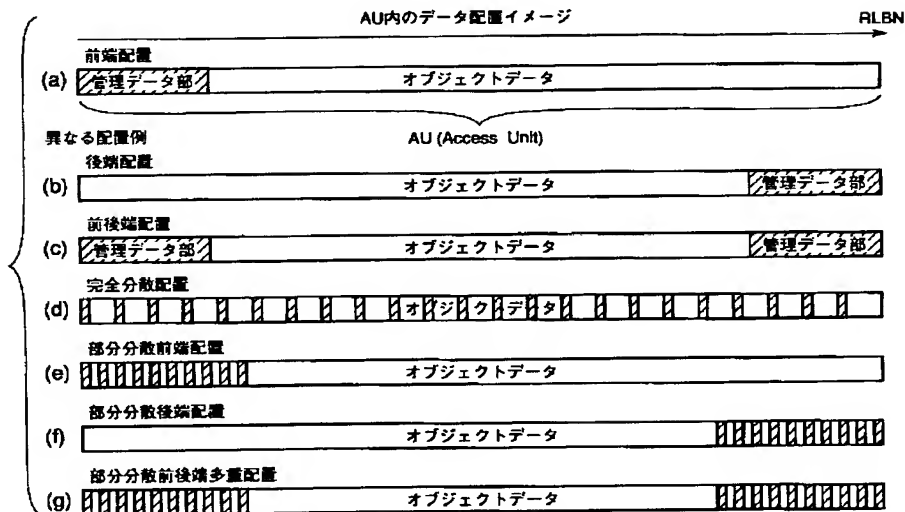 AU内のデータ配置イメージ RLBN
前端配置
(a) 管理データ部 オブジェクトデータ
異なる配置例 AU (Access Unit)
後端配置
(b) オブジェクトデータ 管理データ部
前後端配置
(c) 管理データ部 オブジェクトデータ 管理データ部
完全分散配置
(d) オブジェクトデータ
部分分散前端配置
(e) オブジェクトデータ
部分分散後端配置
(f) オブジェクトデータ
部分分散前後端多重配置
(g) オブジェクトデータ